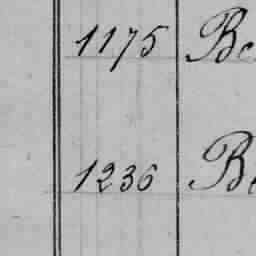 1175 Be
1236 Be